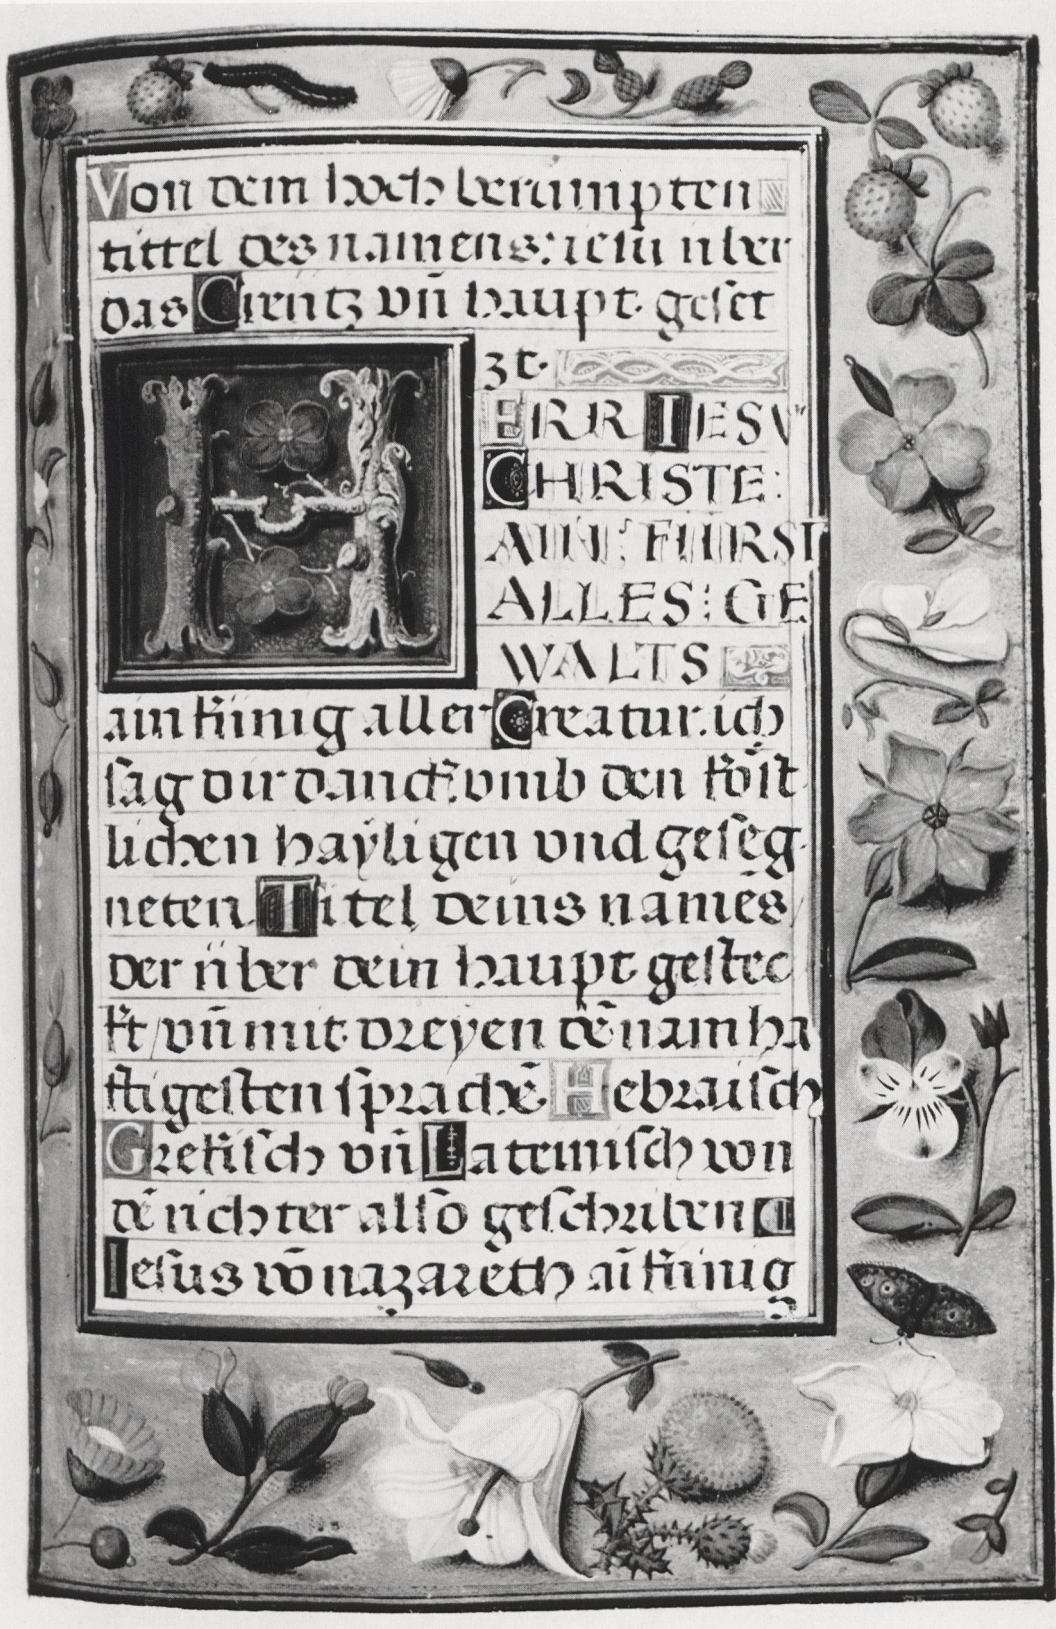 Von dem hoch berümpten
tittel des namens: iesu über
das Creütz uñ haupt geset
zt.
HERR IESV
CHRISTE:
AIN FÜRST
ALLES: GE
WALTS
ain künig aller Creatur. ich
sag dir danck. vmb den köst
lichen hayligen vnd geseg
neten Titel deins namēs
der über dein haupt gestec
kt / vñ mit dreyen dē namha
ftigesten sprachē Hebraisch
Grekisch vñ Lateinisch von
dē richter also geschriben
Iesus vō nazareth aī künig